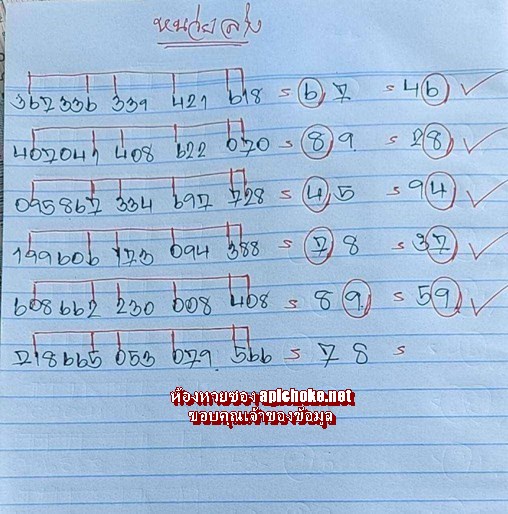 หน่วยล่าง
367336 339 421 618 = 67 = 46
407041 408 622 070 = 89 = 28
095867 334 697 728 = 45 = 94
199606 173 094 388 = 78 = 37
608662 230 008 408 = 89 = 59
718665 053 079 566 = 78 =
ห้องหวยซอง apichoke.net
ขอบคุณเจ้าของข้อมูล